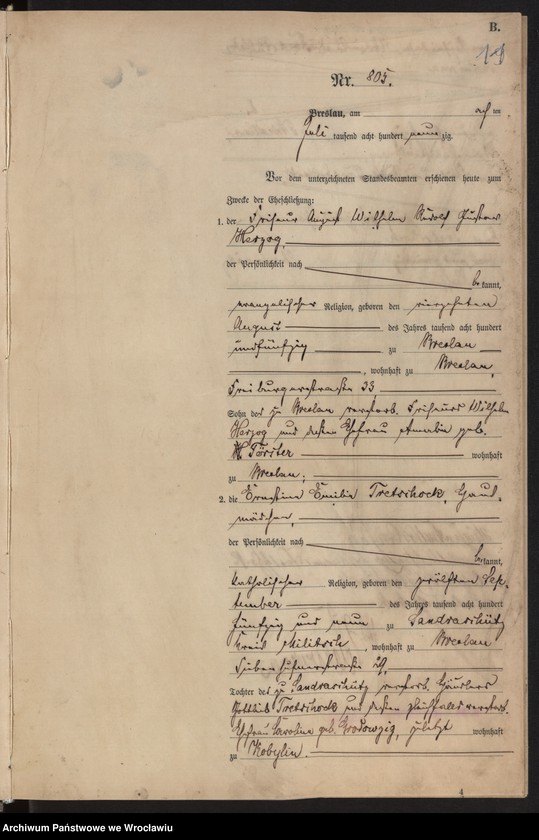 B.
Nr. 805.
Breslau, am acht ten
Juli tausend acht hundert neunzig.
Vor dem unterzeichneten Standesbeamten erschienen heute zum
Zwecke der Eheschließung:
1. der Friseur August Wilhelm Rudolf Gustav
Herzog,
der Persönlichkeit nach
bekannt,
evangelischer Religion, geboren den vierzehnten
August des Jahres tausend acht hundert
undfünfzig zu Breslau
, wohnhaft zu Breslau,
Freiburgerstraße 33,
Sohn des zu Breslau verstorb. Friseurs Wilhelm
Herzog und dessen Ehefrau Amalie geb.
Förster wohnhaft
zu Breslau;
2. die Ernestine Emilie Tretschock, Haus-
mädchen,
der Persönlichkeit nach
bekannt,
katholischer Religion, geboren den zwölften Sep-
tember des Jahres tausend acht hundert
fünfzig und neun zu Sandraschütz
Kreis Militsch, wohnhaft zu Breslau
29,
Tochter des zu Sandraschütz verstorb. Häuslers
Gottlieb Tretschock und dessen gleichfalls verstorb.
Ehefrau Caroline geb. zuletzt wohnhaft
zu Kobylin.
4
Archiwum Państwowe we Wrocławiu